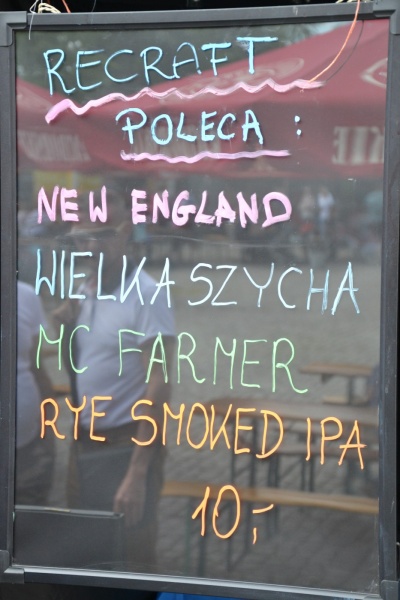 RECRAFT
POLECA :
NEW ENGLAND
WIELKA SZYCHA
MC FARMER
RYE SMOKED IPA
10,-